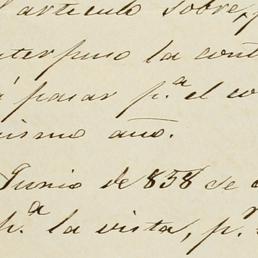 l articulo sobre, p
nterpuso la cont
á pasar p.ª el co
mismo año.
Junio de 858 se
p.ª la vista, p.r